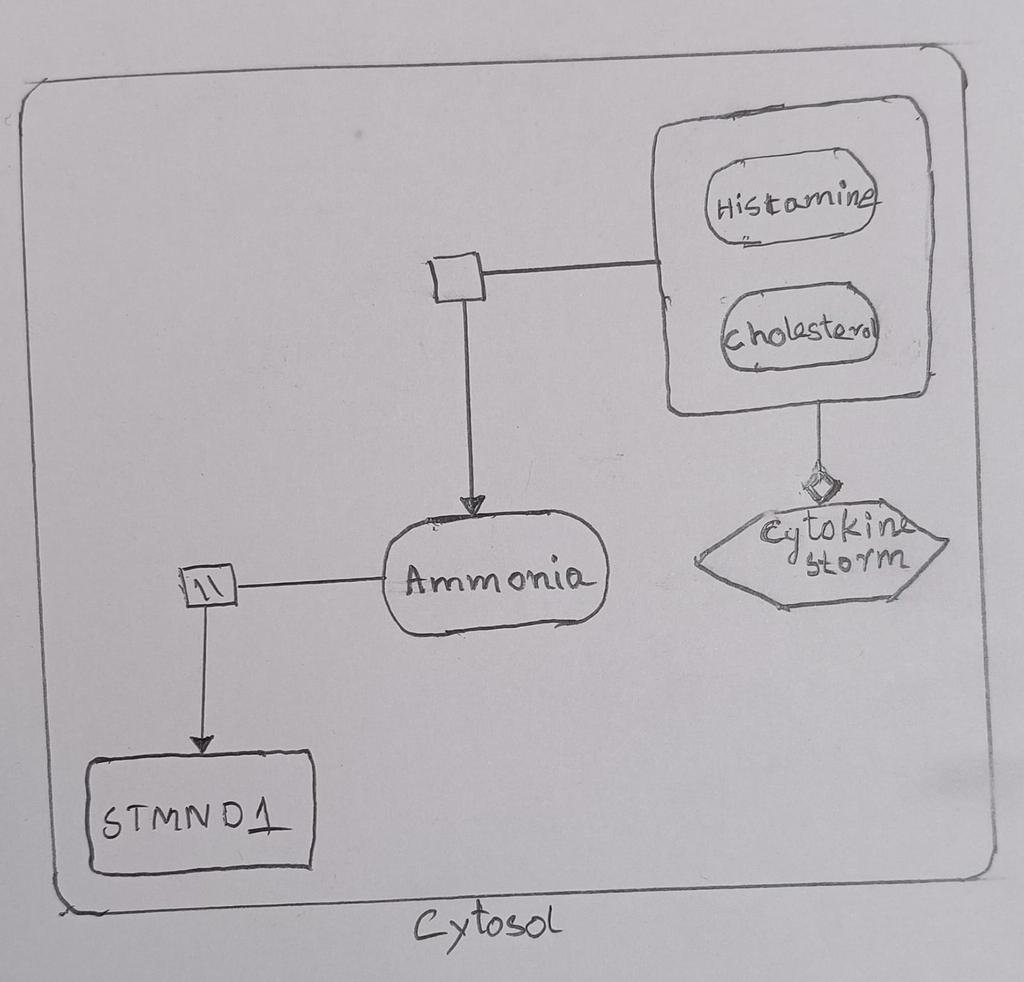 Histamine
cholesterol
Cytokine
storm
Ammonia
\\
STMND1
Cytosol